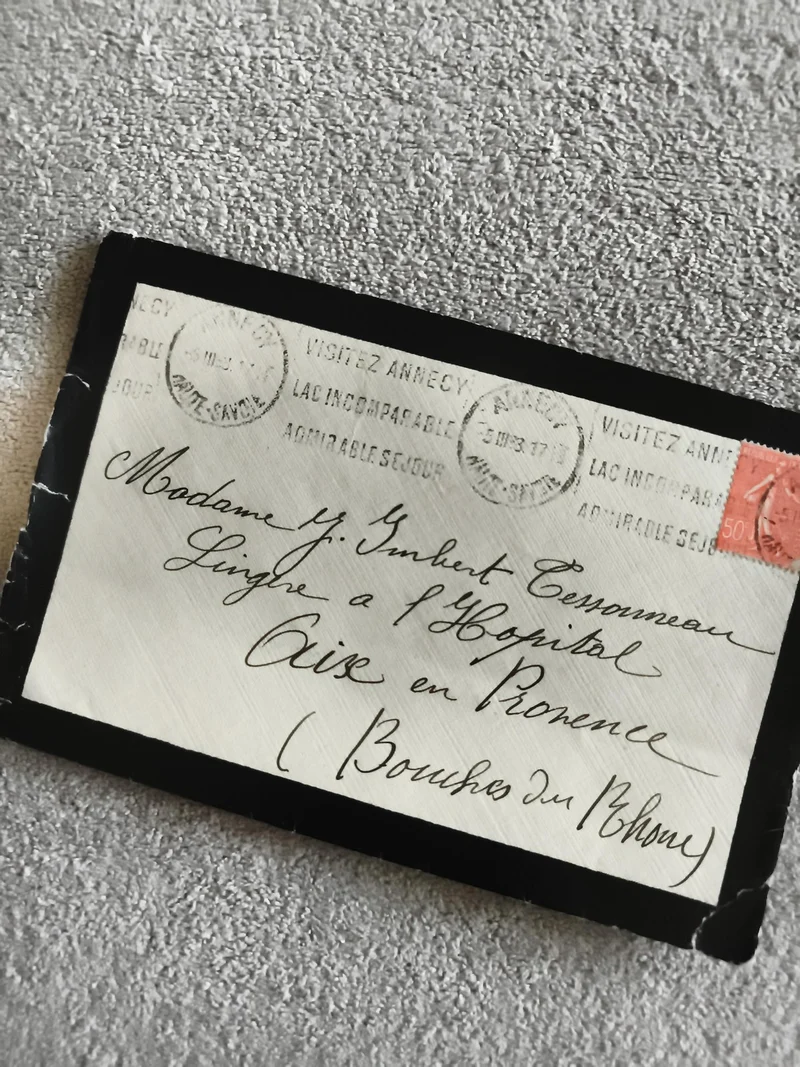 NECY
ANNECY
HAUTE-SAVOIE
VISITEZ ANNECY
LAC INCOMPARABLE
ADMIRABLE SEJOUR
ANNECY
HAUTE-SAVOIE
VISITEZ ANN
LAC INCOMPARA
ADMIRABLE SEJO
50
Madame Y. Imbert Tessonneau
Lingère a l'Hopital
Aix en Provence
(Bouches du Rhone)